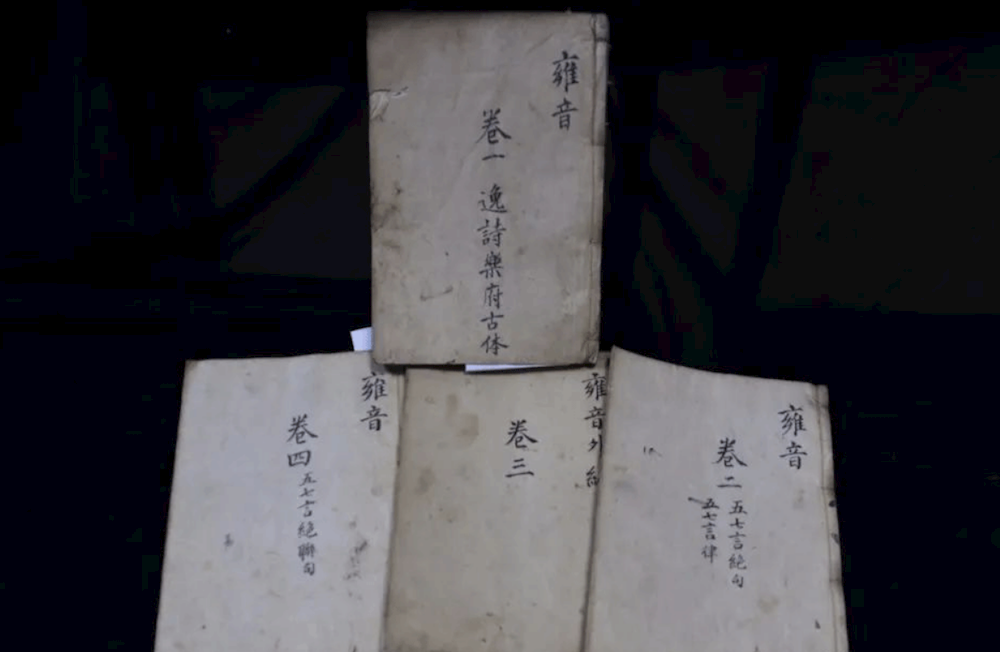 雍音
卷一 逸詩樂府古体
雍音
卷二 五七言絕句
五七言律
雍音外
卷三
雍音
卷四 五七言絕聯句